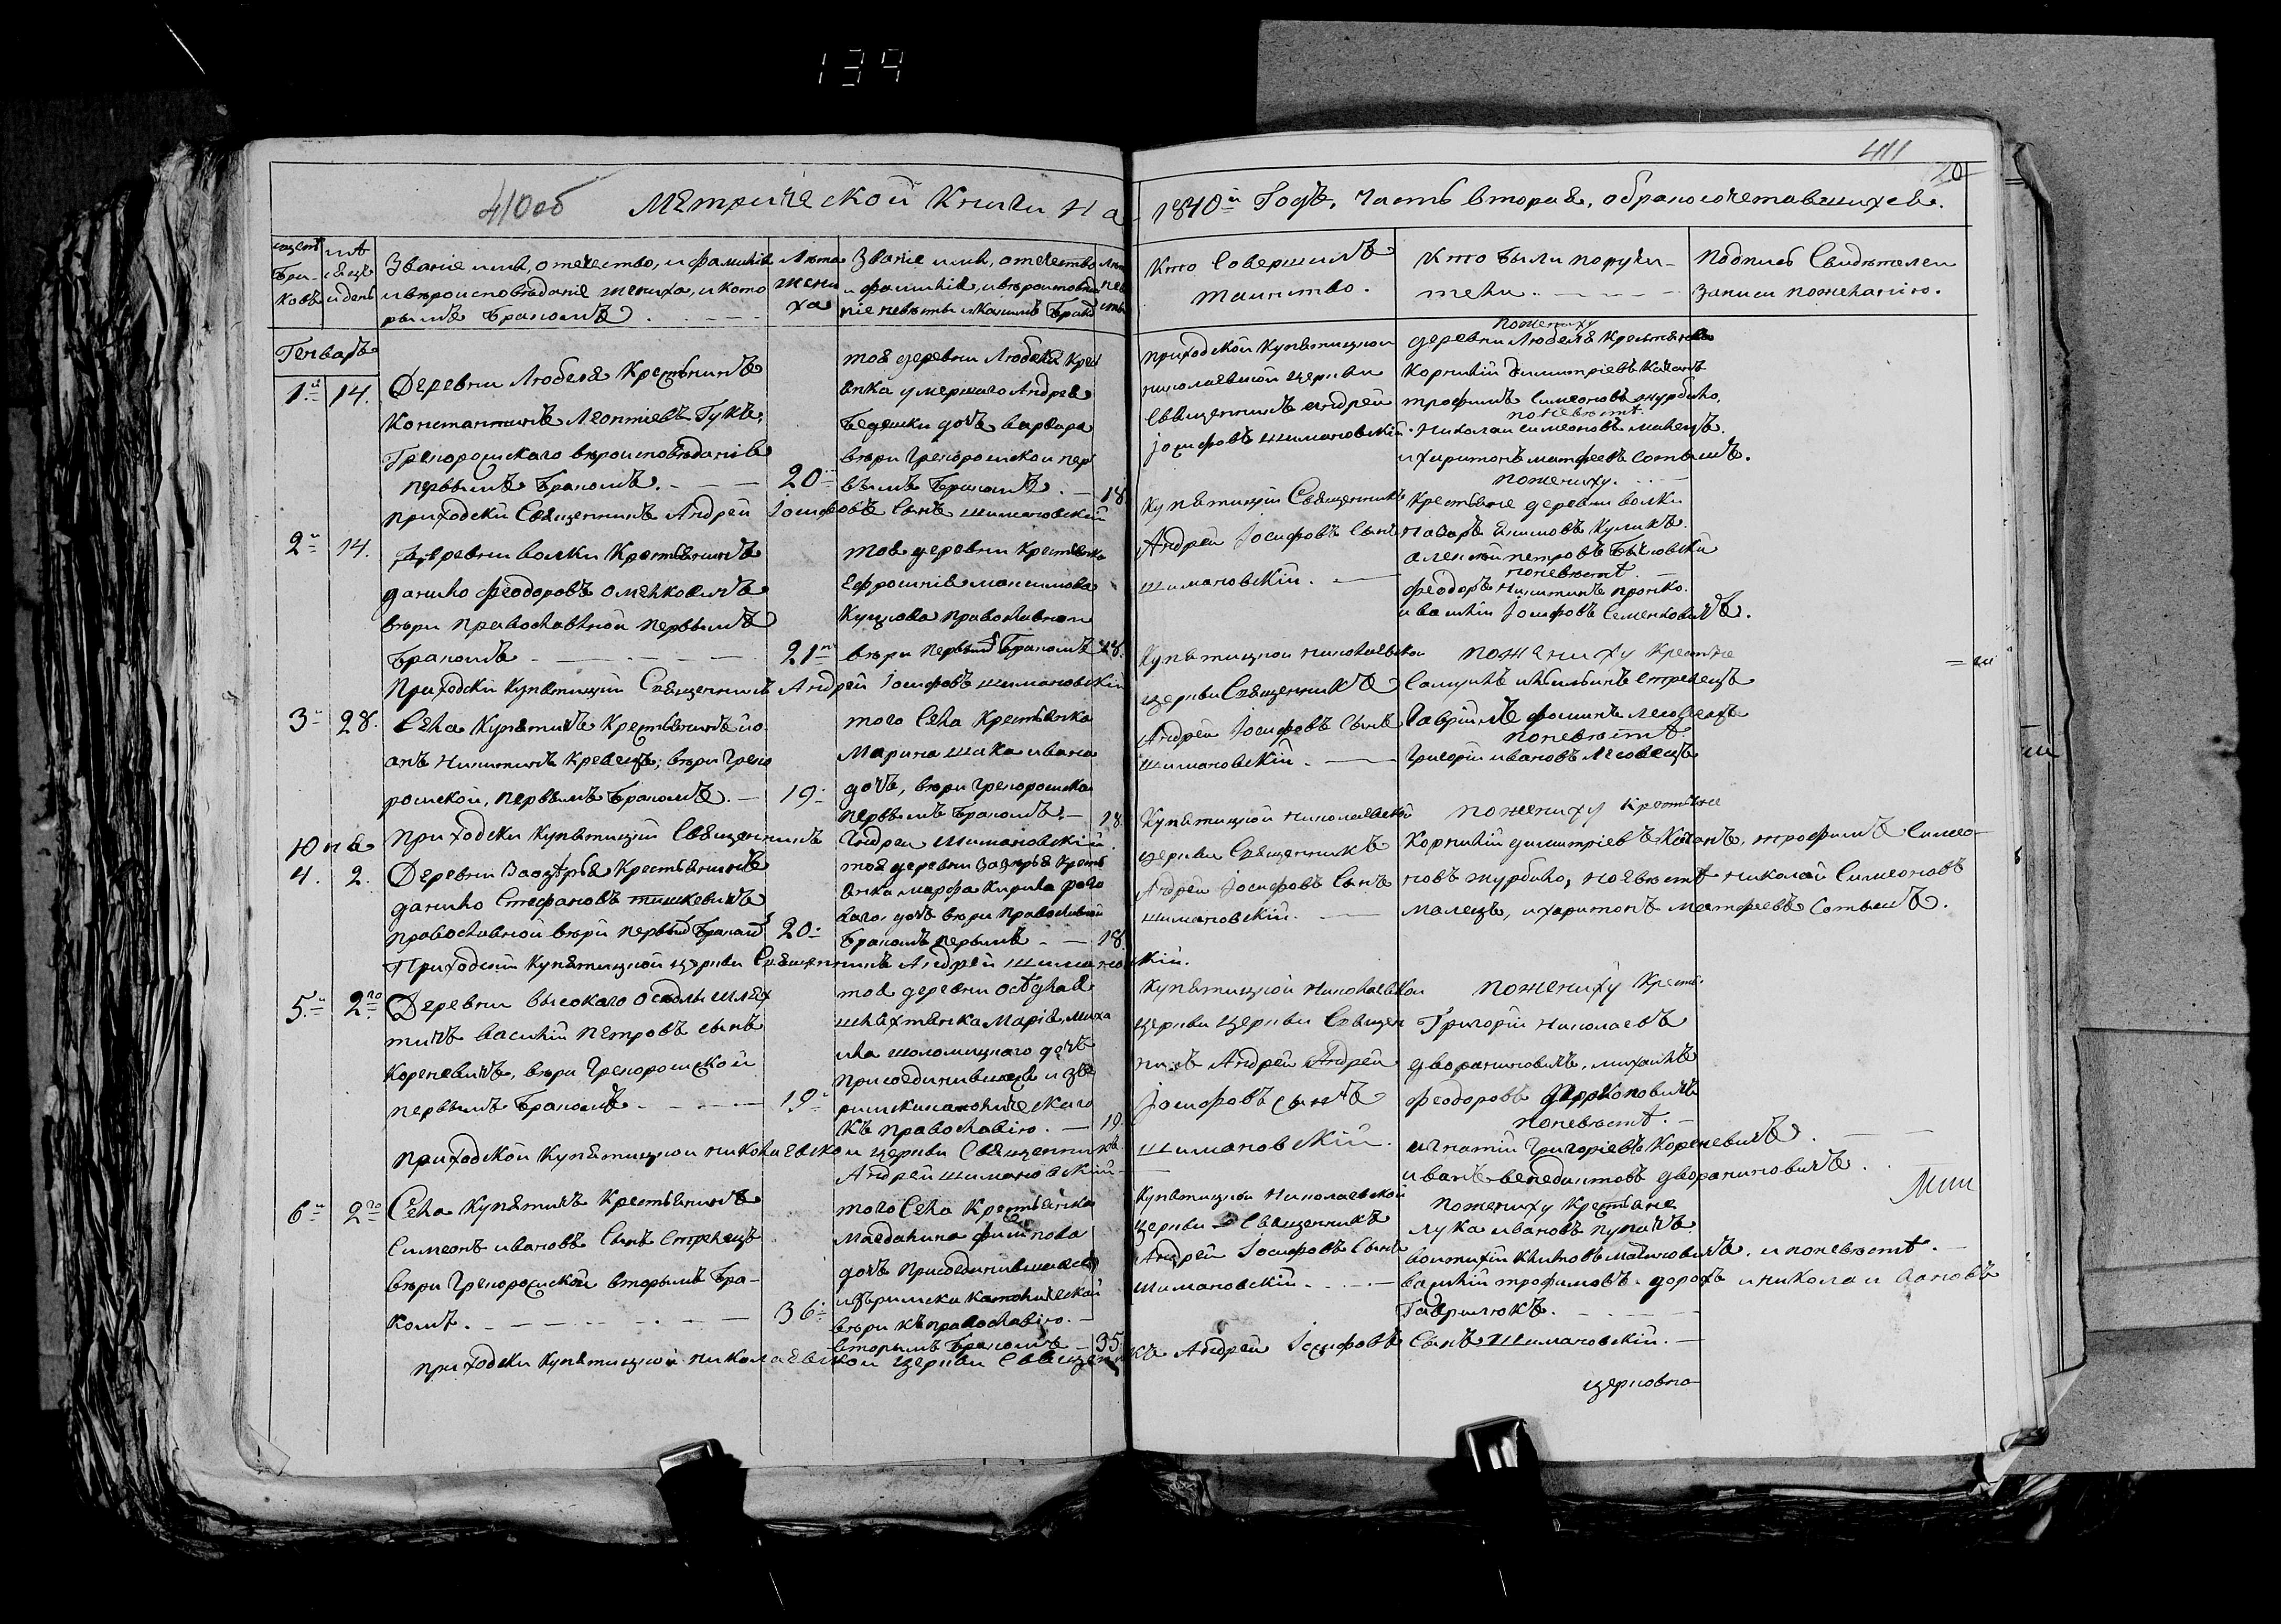 134
411
20
410об Метрической Книги На 1840й Годъ, часть вторая, о бракосочетавшихся.
Бра-
ковъ
и день
Званіе имя, отечество, и фамилія
и вѣроисповѣданіе жениха, и кото
рымъ бракомъ
Лѣта
жени
ха
Званіе имя, отечество
и фамилія, и вѣроисповѣда
ніе невѣсты и какимъ бракомъ
Кто Совершилъ
таинство.
Кто были поручи-
тели.
Подпись Свидѣтелей
записи по желанію.
Генварь
1й 14.
Деревни Любеля Крестьянинъ
Константинъ Леонтіевъ Гукъ,
Грекоросскаго вѣроисповѣданія
первымъ бракомъ.
20
тоя деревни Любеля крес
янка умершаго Андрея
дочъ варвара
вѣры грекоросской пер
вымъ бракомъ.
18
приходской Купятицкой
николаевской церкви
Священникъ Андрей
Іосифовъ Шимановскій
по жениху
деревни Любеля Крестьяне
Корнилій Димитріевъ Качанъ
трофимъ Симеоновъ журбило,
по невѣстѣ.
Николай Симеоновъ малецъ.
и харитонъ матфеевъ Сотычъ.
приходскій Священникъ Андрей Іосифовъ Сынъ Шимановскій
2й 14.
Деревни волки Крестьянинъ
данило Феодоровъ Омельковичъ
вѣры православной первымъ
бракомъ
21
тоя деревни Крестьянка
Ефросинія максимова
Куцкова православной
вѣры первымъ бракомъ
18.
Купятицкій Священникъ
Андрей Іосифовъ Сынъ
Шимановскій.
по жениху.
Крестьяне деревни волки
Назаръ Екимовъ Куликъ.
алексей петровъ
по невѣстѣ
Феодоръ Никитинъ пронко.
и василій Іосифовъ Семенковичъ.
Приходскій Купятицкій Священникъ Андрей Іосифовъ Шимановскій
3й 28.
Села Купятичъ Крестьянинъ іо-
анъ Никитинъ Кравецъ, вѣры греко
росской, первымъ бракомъ.
19.
того Села Крестьянка
Марина ивана
дочъ, вѣры грекоросской
первымъ бракомъ.
18.
Купятицкой николаевской
церкви Священникъ
Андрей Іосифовъ Сынъ
Шимановскій.
по жениху Крестьяне
Самуилъ Стрелецъ
Гавріилъ фоминъ лесовецъ
по невѣстѣ
Григорій ивановъ лесовецъ
приходскій Купятицкій Священникъ Андрей Шимановскій.
Юнь
4. 2.
Деревни Заозерья Крестьянинъ
данило Стефановъ тишкевичъ
православной вѣры первымъ бракомъ
20
тоя деревни Заозерья кресть
янка марфа Кирила
дочъ вѣры православной
бракомъ первымъ
18.
Купятицкой николаевской
церкви Священникъ
Андрей Іосифовъ Сынъ
Шимановскій.
по жениху Крестьяне
Корнилій димитріевъ Качанъ, и трофимъ Симео-
новъ журбило, по невѣстѣ николай Симеоновъ
малецъ, и харитонъ матфеевъ Сотычъ.
Приходскій Купятицкой церкви Священникъ Андрей Шимановскій.
5й 2го
Деревни высокаго шлях
тичъ василій петровъ сынъ
Кореневичъ, вѣры грекоросской
первымъ бракомъ
19
тоя деревни
шляхтянка Марія, миха
ила дочъ
присоединившаяся изъ
римскокатолическаго
къ православію.
19.
Купятицкой николаевской
церкви церкви Священ
никъ Андрей Андрей
Іосифовъ сынъ
Шимановскій.
по жениху Крест.
Григорій Николаевъ
дворяниновичъ, михаилъ
феодоровъ
по невѣстѣ.
игнатій григоріевъ Кореневичъ.
иванъ венедиктовъ дворяниновичъ.
приходской Купятицкой николаевской церкви Священникъ
Андрей Шимановскій
6й 2го
Села Купятичъ Крестьянинъ
Симеонъ ивановъ Сынъ Стрелецъ
вѣры грекоросской вторымъ бра-
комъ.
36
того Села Крестьянка
Магдалина филипова
дочъ присоединившаяся
изъ римско католической
вѣры къ православію.
вторымъ бракомъ
35
Купятицкой Николаевской
церкви Священникъ
Андрей Іосифовъ Сынъ
Шимановскій.
по жениху Крестьяне
лука ивановъ
и по невѣстѣ.
василій трофимовъ дорохъ и николай
Гаврилюкъ.
приходскій Купятицкой николаевской церкви Священникъ Андрей Іосифовъ Сынъ Шимановскій.
церковно